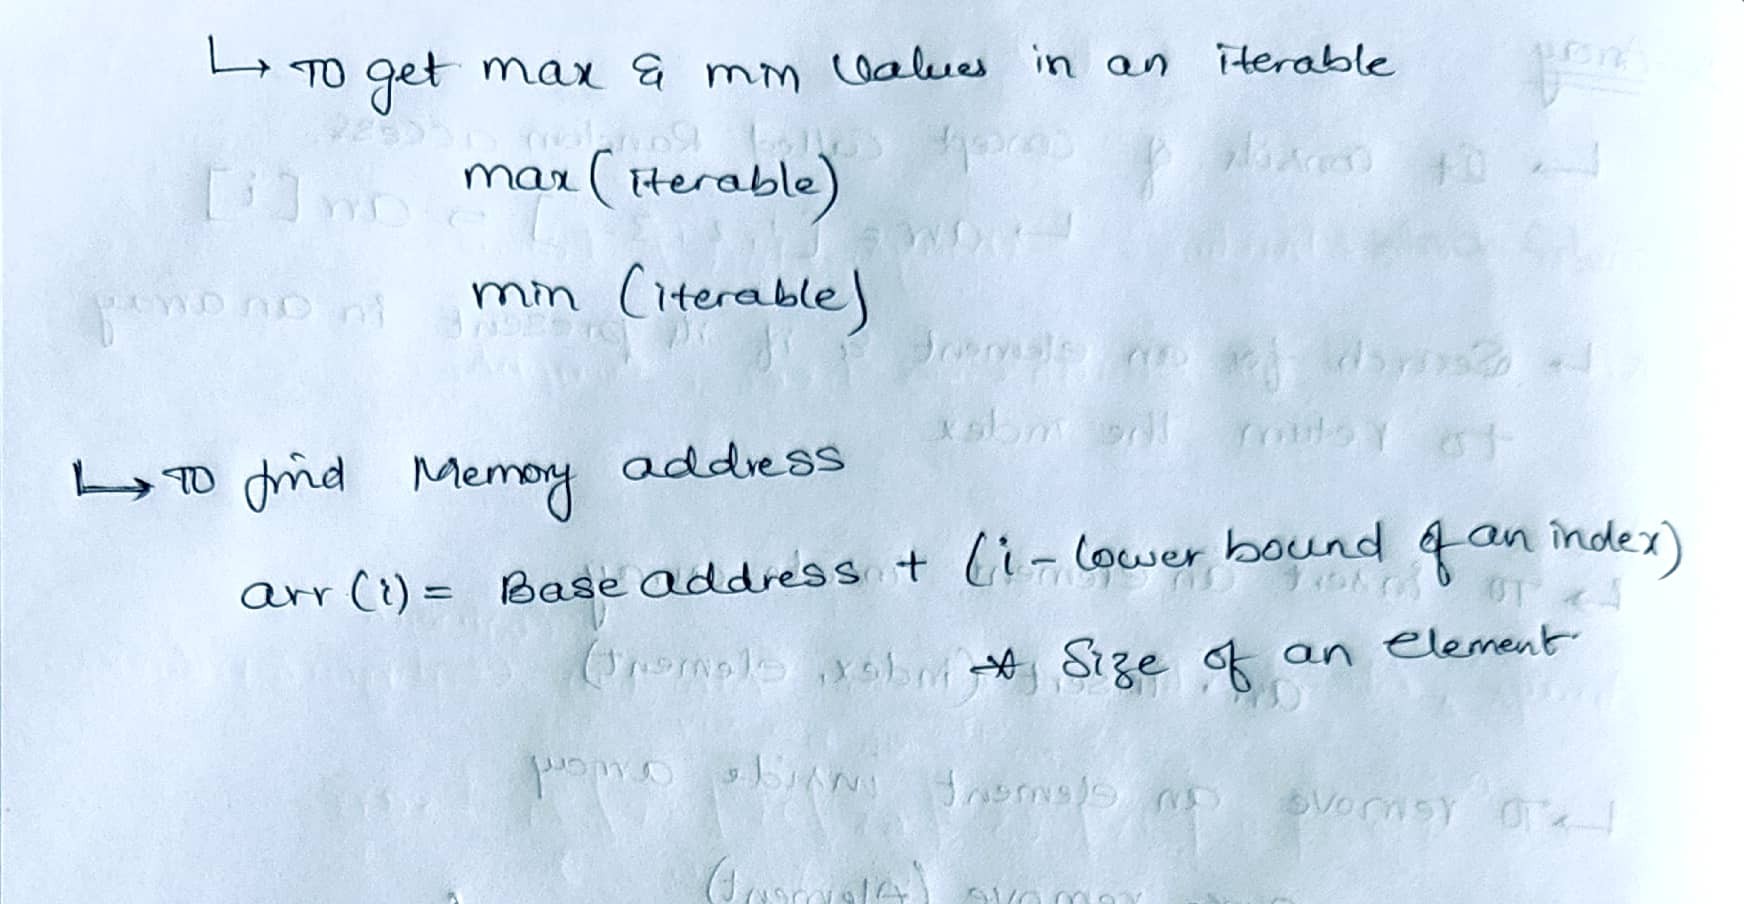 ↳ To get max & min values in an iterable
max (iterable)
min (iterable)
↳ To find Memory address
arr (i) = Base address + (i - lower bound of an index)
* Size of an element